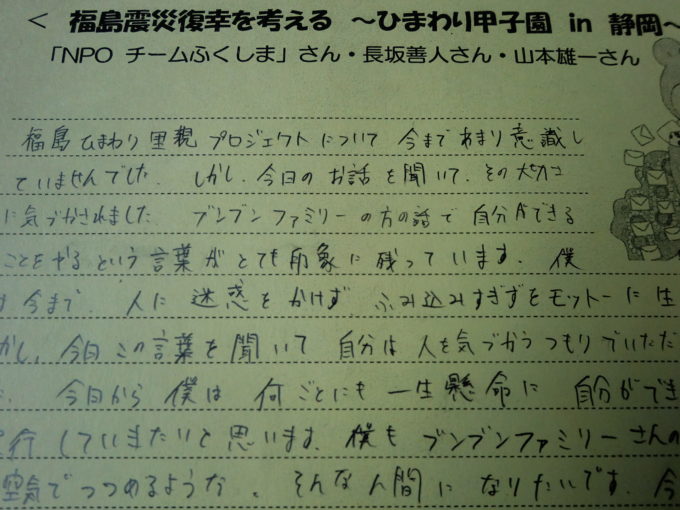 < 福島震災復幸を考える ~ひまわり甲子園 in 静岡~
「NPO チームふくしま」さん・長坂善人さん・山本雄一さん
福島ひまわり里親プロジェクトについて 今まであまり意識し
ていませんでした。しかし、今日のお話を聞いて、その大切さ
に気づかされました ブンブンファミリーの方の話で自分ができる
ことをやるという言葉がとても印象に残っています。僕
は今まで、人に迷惑をかけず ふみ込みすぎずをモットーに生
かし、今日この言葉を聞いて 自分は人を気づかうつもりでいただ
今日から僕は 何ごとにも一生懸命に 自分ができ
行していきたいと思います。僕もブンブンファミリーさんの
空気でつつめるような、そんな人間になりたいです。今